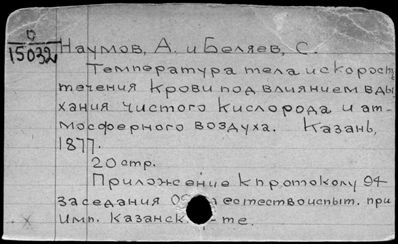 0
15032
Наумов, А. и Беляев, С.
Температура тела и скорость
течения крови под влиянием вды
хания чистого кислорода и ат-
мосферного воздуха. Казань,
1877.
20 стр.
Приложение к протоколу 94
заседания естествоиспыт. при
Имп. Казанск те.